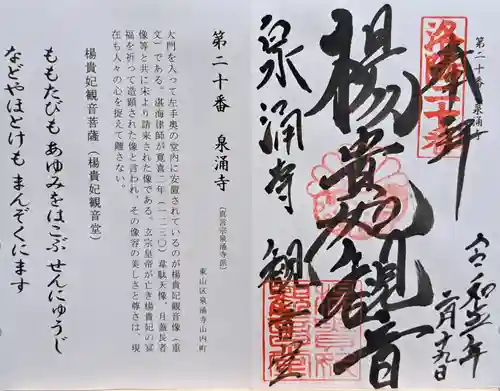 第二十番 泉涌寺
洛陽二十番
奉拝
令和五年
二月十九日
楊貴妃観音
泉涌寺 観音堂
第二十番 泉涌寺
(真言宗泉涌寺派)
東山区泉涌寺山内町
大門を入って左手奥の堂内に安置されているのが楊貴妃観音像(重
文)である。湛海律師が寛喜二年(一二三〇)韋駄天像、月蓋長者
像等と共に宋より請来された像である。玄宗皇帝が亡き楊貴妃の冥
福を祈って造顕された像と言われ、その像容の美しさと尊さは、現
在も人々の心を捉えて離さない。
楊貴妃観音菩薩(楊貴妃観音堂)
ももたびも あゆみをはこぶ せんにゅうじ
などやほとけも まんぞくにます